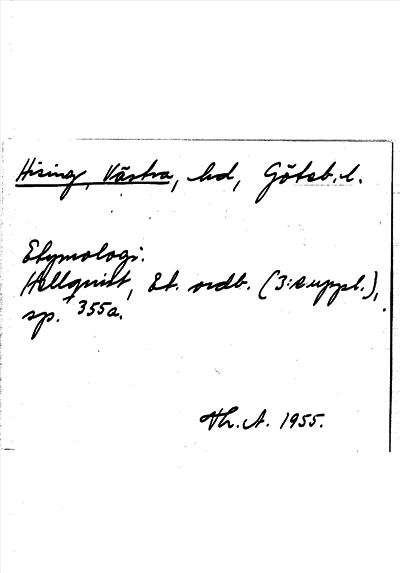 Hising, Västra, hd, Göteb. l.
Etymologi.
Hellquist, Et. ordb. (3: suppl.),
sp. 355a.
Th. A. 1955.